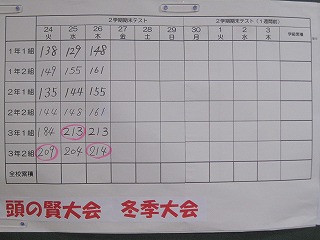 2学期期末テスト 2学期期末テスト(1週間前)
24 25 26 27 28 29 30 1 2 3 学級累積
火 水 木 金 土 日 月 火 水 木
1年1組 138 129 148
1年2組 149 155 161
2年1組 135 144 155
2年2組 144 148 161
3年1組 184 213 213
3年2組 209 204 214
全校累積
頭の賢大会 冬季大会